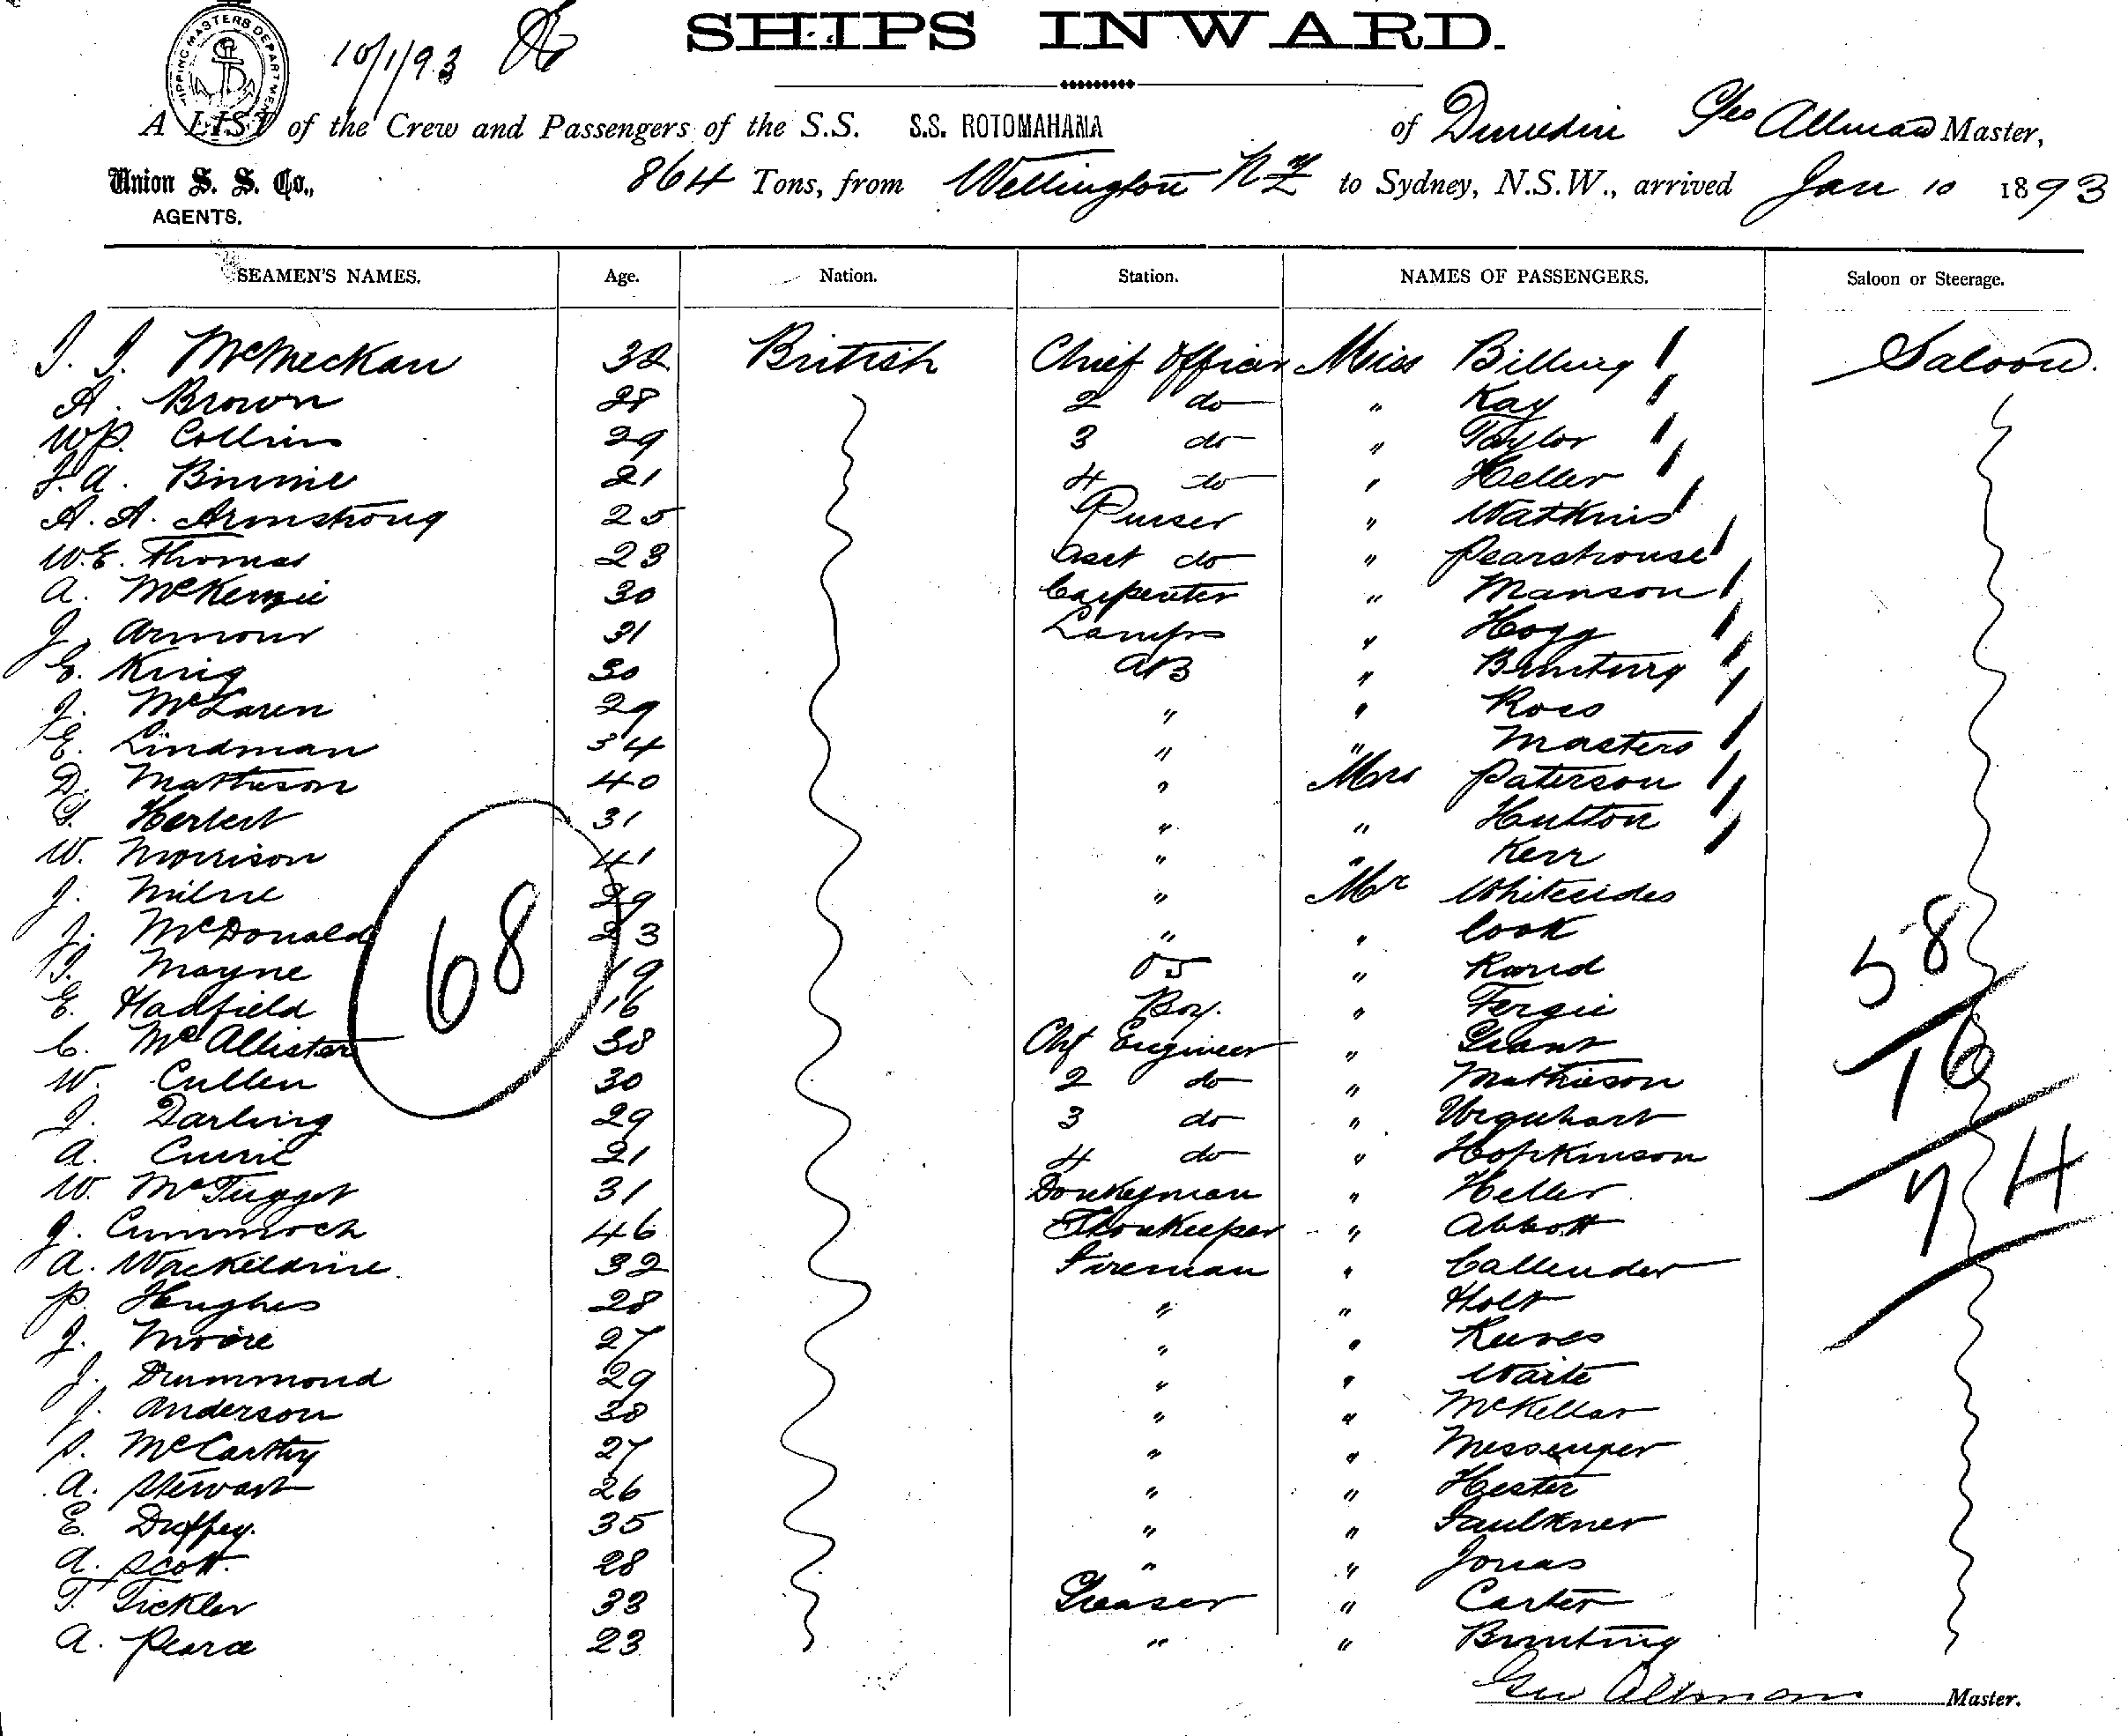 SHIPS INWARD.
SHIPPING MASTERS DEPARTMENT
10/1/93
A LIST of the Crew and Passengers of the S.S. S.S. ROTOMAHANA of Dunedin Geo Allman Master,
Union S. S. Co., 864 Tons, from Wellington NZ to Sydney, N.S.W., arrived Jan 10 1893
AGENTS.
SEAMEN'S NAMES. Age. Nation. Station. NAMES OF PASSENGERS. Saloon or Steerage.
J. J. McMeckan 32 British Chief Officer Miss Billing Saloon.
A. Brown 28 2 do " Kay
W.P. Collins 29 3 do " Taylor
J. A. Binnie 21 4 do " Heller
A. A. Armstrong 25 Purser " Watkins
W.E. Thomas 23 Asst do " Pearshouse
A. McKenzie 30 Carpenter " Manson
J. Armour 31 Lamps " Hogg
E. King 30 AB " Bunting
J. McLaren 29 " " Ross
E. Lindman 34 " " Masters
D. Matheson 40 " Mrs Paterson
G. Herbert 31 " " Hutton
W. Morrison 41 " " Kerr
J. Milne 29 " Mr Whitesides
J. McDonald 23 " " Cook
J. Mayne 19 OS " Rand
E. Hadfield 16 Boy. " Fergie
C. McAllister 38 Chf Engineer " Grant
W. Cullen 30 2 do " Mathieson
J. Darling 29 3 do " Urquhart
A. Currie 21 4 do " Hopkinson
W. McTugget 31 Donkeyman " Heller
J. Cummock 46 Storekeeper " Abbott
A. Wackildine 32 Fireman " Callender
P. Hughes 28 " " Holt
J. Moore 27 " " Reeves
J. Drummond 29 " " Waite
J. Anderson 38 " " McKellar
S. McCarthy 27 " " Messenger
A. Stewart 26 " " Hester
E. Duffey. 35 " " Faulkner
A. Scott. 28 " " Jonas
T. Tickler 33 Greaser " Carter
A. Pearce 23 " " Bunting
68
58
16
74
Geo Allman Master.